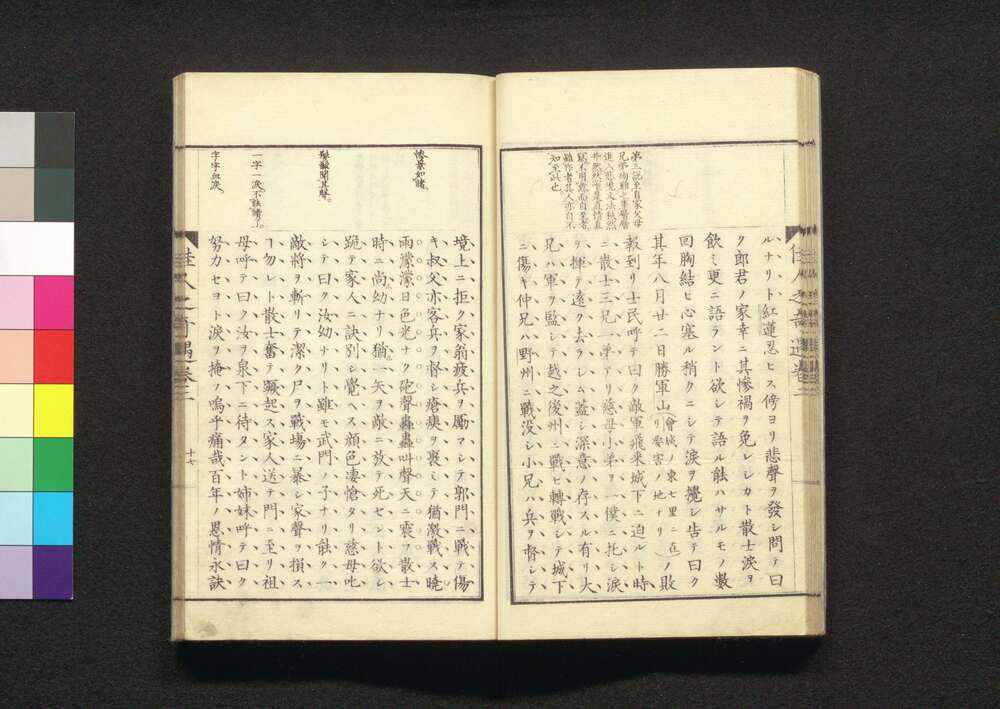 第三記至自家父母
兄弟殉難之事層層
進入悲境文法秩然
井然然實是眞情眞
知至此也
ルナリト紅蓮忍ヒス傍ヨリ悲聲ヲ發シ問テ曰
ク郎君ノ家幸ニ其慘禍ヲ免レシカト散士淚ヲ
飲ミ更ニ語ラント欲シテ語ル能ハサルモノ數
回胸結ヒ心塞ル稍クニシテ淚ヲ攪シ告テ曰ク
其年八月廿二日勝軍山(會城ノ東七里ニ在リ要害ノ地ナリ)ノ敗
報到リ士民呼テ曰ク敵軍飛來城下ニ迫ルト時
ニ散士三兄一弟アリ慈母小弟ヲ一僕ニ托シ淚
ヲ揮テ遠ク去ラシム蓋シ深意ノ存スル有リ大
兄ハ軍ヲ監シテ越之後州ニ戰ヒ轉戰シテ城下
ニ傷キ仲兄ハ野州ニ戰沒シ小兄ハ兵ヲ督シテ
佳人之奇遇卷二
慘景如睹
髣髴聞其聲
一字一淚不能讀了
字字血淚
境上ニ拒ク家翁疲兵ヲ勵マシテ郭門ニ戰テ傷
キ叔父亦客兵ヲ督シ瘡痍ヲ裹ミテ猶激戰ス曉
雨濛濛日色光ナク砲聲轟轟叫聲天ニ震フ散士
時ニ尚幼ナリ猶一矢ヲ敵ニ放テ死セント欲シ
跪テ家人ニ訣別シ覺ヘス顏色凄愴タリ慈母叱
シテ曰ク汝幼ナリト雖モ武門ノ子ナリ能ク一
敵將ヲ斬リテ潔ク尸ヲ戰場ニ暴シ家聲ヲ損ス
ヿ勿レト散士奮テ蹶起ス家人送テ門ニ至リ祖
母呼テ曰ク汝ヲ泉下ニ待タント姉妹呼テ曰ク
努力セヨト淚ヲ掩フ嗚乎痛哉百年ノ恩情永訣
佳人之奇遇卷二
十七